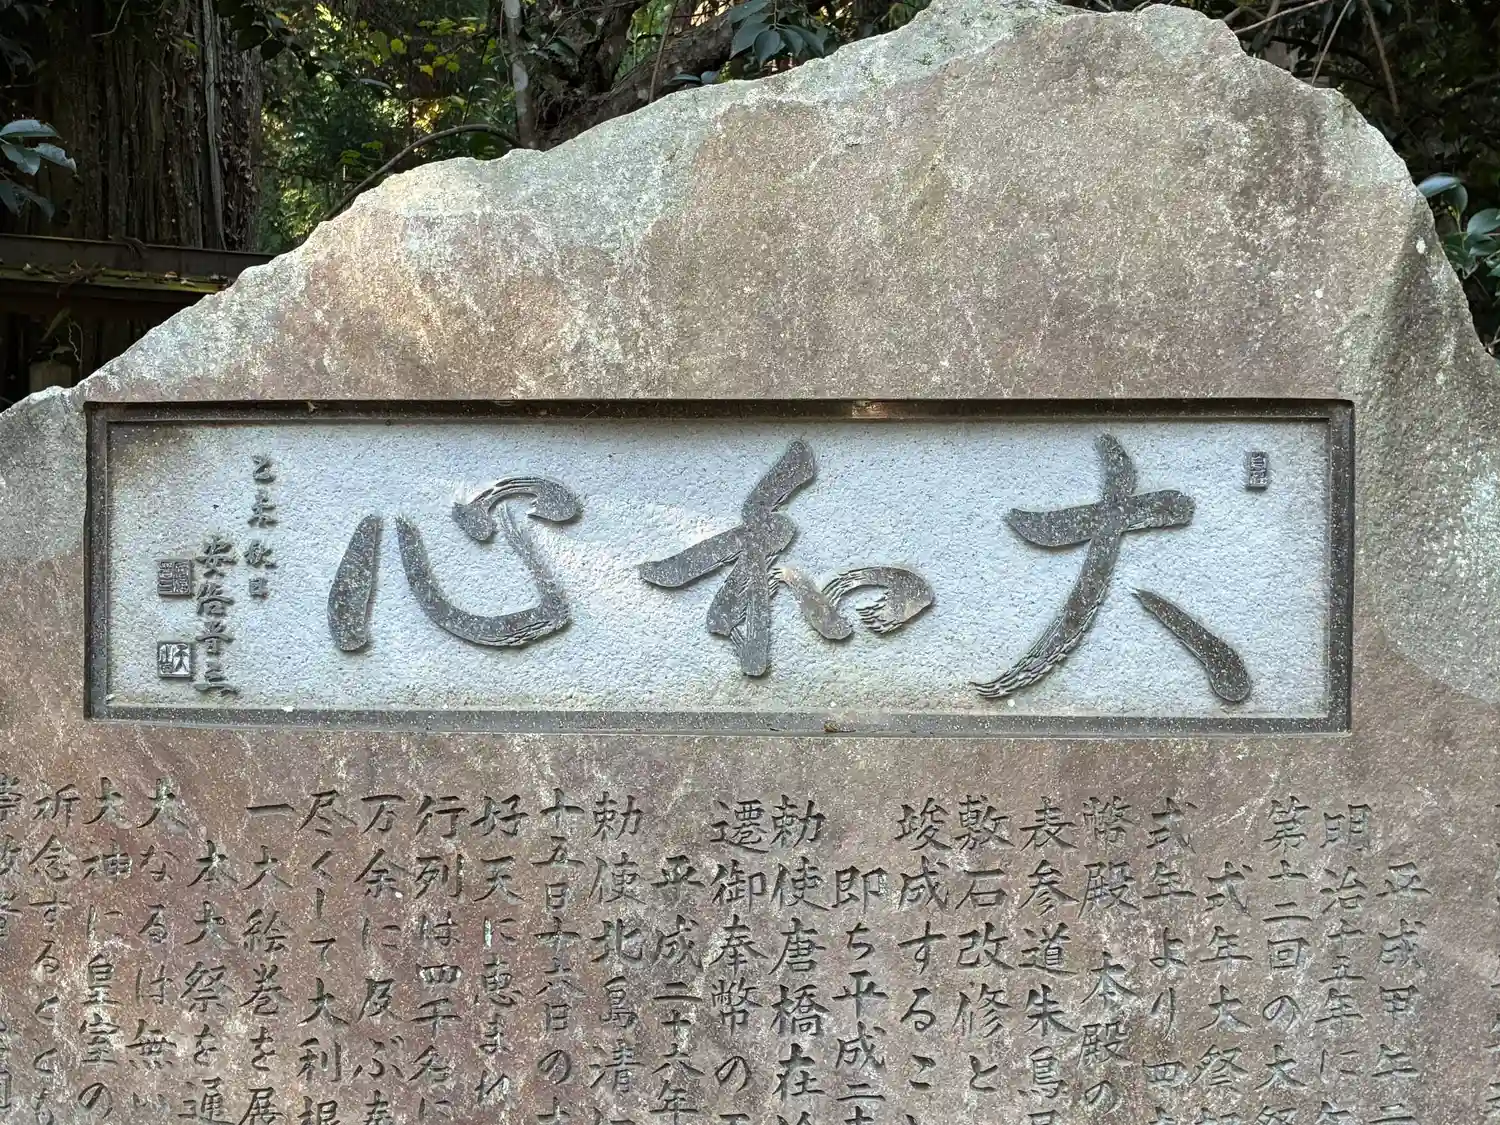 大和心
乙未秋日
安倍晋三
平成甲午二
明治十五年に
第十二回の大祭
式年大祭
式年より四
幣殿、本殿の
表参道朱鳥
敷石改修と
竣成すること
即ち平成二十
勅使唐橋在
遷御奉幣の
平成二十六年
勅使北島清仁
十五日十六日の
好天に恵まれ
行列は四千名に
万余に及ぶ奉
尽くして大利根
一大絵巻を展
本大祭を通
大なるは無い
大神に皇室の
祈念するととも